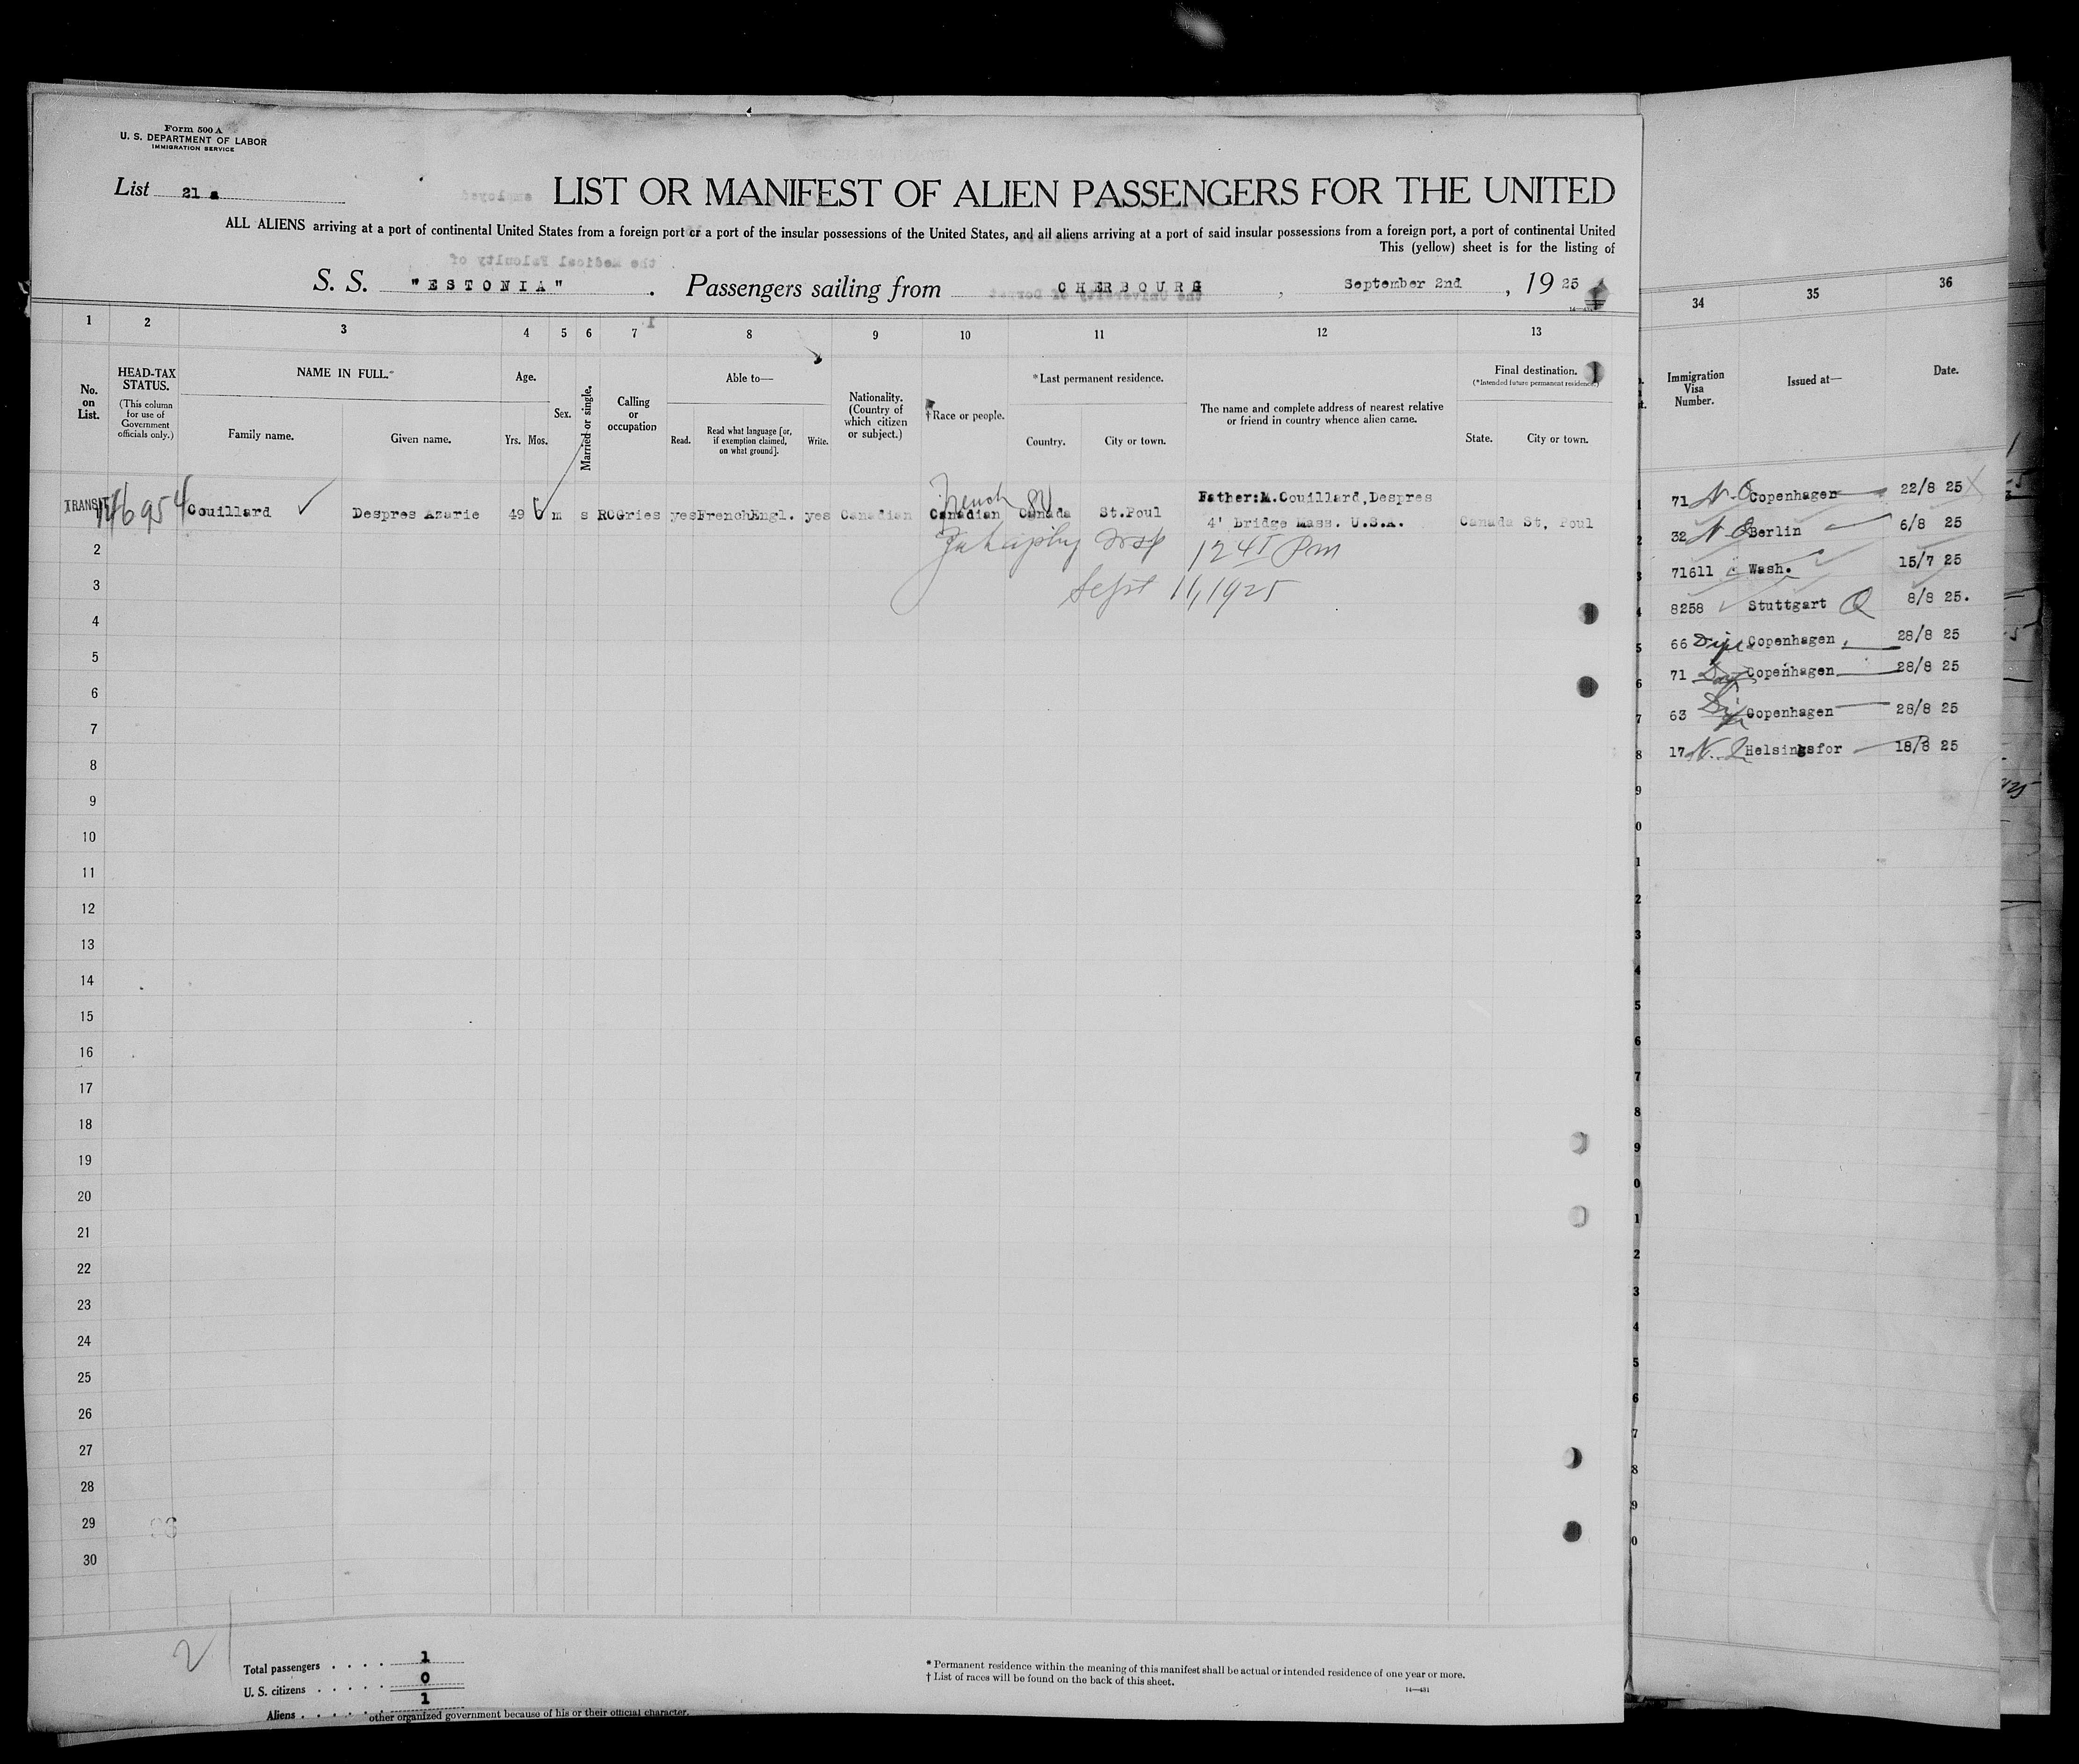 Form 500 A
U. S. DEPARTMENT OF LABOR
IMMIGRATION SERVICE
List 21 a
LIST OR MANIFEST OF ALIEN PASSENGERS FOR THE UNITED
ALL ALIENS arriving at a port of continental United States from a foreign port or a port of the insular possessions of the United States, and all aliens arriving at a port of said insular possessions from a foreign port, a port of continental United
This (yellow) sheet is for the listing of
S. S. "ESTONIA" . Passengers sailing from CHERBOURG , September 2nd , 19 25
1 2 3 4 5 6 7 8 9 10 11 12 13
No. on List.
HEAD-TAX STATUS.
(This column for use of Government officials only.)
NAME IN FULL.
Family name. Given name.
Age.
Yrs. Mos.
Sex.
Married or single.
Calling or occupation
Able to—
Read. Read what language [or, if exemption claimed, on what ground]. Write.
Nationality. (Country of which citizen or subject.)
†Race or people.
*Last permanent residence.
Country. City or town.
The name and complete address of nearest relative or friend in country whence alien came.
Final destination.
(*Intended future permanent residence.)
State. City or town.
French
Father:M.Couillard,Despres
TRANSIT 46954 Couillard Despres Azarie 49 m s RCGries yes French Engl. yes Canadian Canadian Canada St.Poul 4' Bridge Mass. U.S.A. Canada St, Poul
12 45 Pm
Sept 11, 1925
2
3
4
5
6
7
8
9
10
11
12
13
14
15
16
17
18
19
20
21
22
23
24
25
26
27
28
29
30
21
Total passengers . . . . 1
U. S. citizens . . . . . 0
Aliens . . . . . . 1
other organized government because of his or their official character.
* Permanent residence within the meaning of this manifest shall be actual or intended residence of one year or more.
† List of races will be found on the back of this sheet.
14—431
34 35 36
Immigration Visa Number. Issued at— Date.
71 Copenhagen 22/8 25
32 Berlin 6/8 25
71611 Wash. 15/7 25
8258 Stuttgart 8/8 25.
66 Copenhagen 28/8 25
71 Copenhagen 28/8 25
63 Copenhagen 28/8 25
17 Helsingsfor 18/8 25